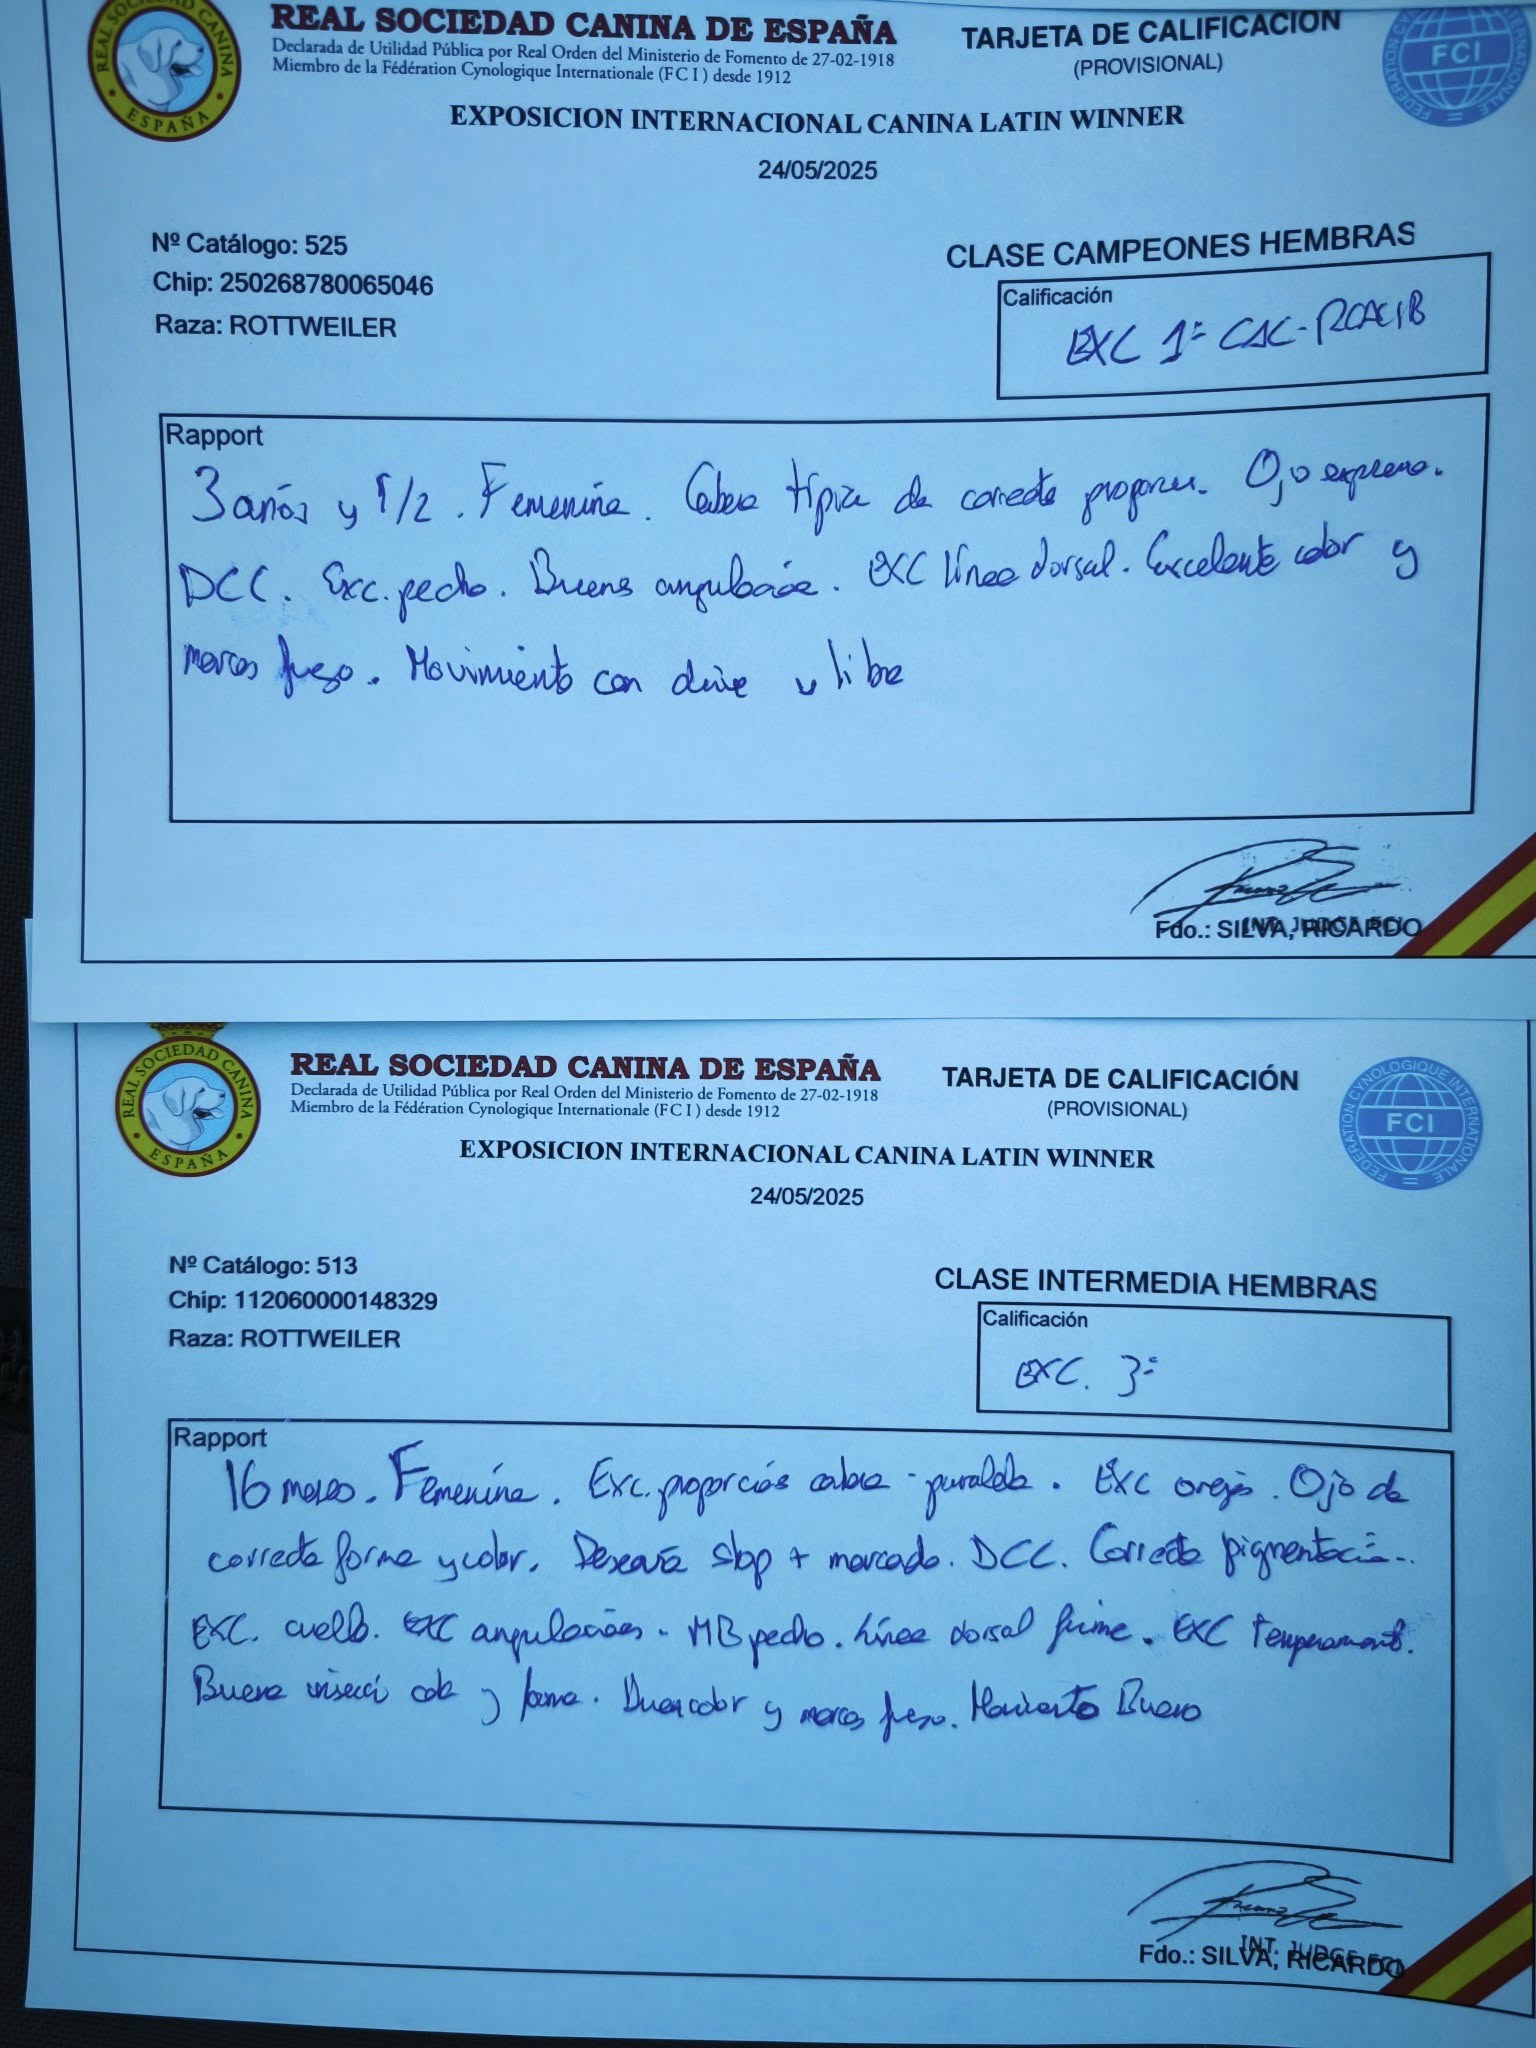 REAL SOCIEDAD CANINA
ESPAÑA
REAL SOCIEDAD CANINA DE ESPAÑA
Declarada de Utilidad Pública por Real Orden del Ministerio de Fomento de 27-02-1918
Miembro de la Fédération Cynologique Internationale (FCI) desde 1912
TARJETA DE CALIFICACIÓN
(PROVISIONAL)
FCI
EXPOSICION INTERNACIONAL CANINA LATIN WINNER
24/05/2025
Nº Catálogo: 525
Chip: 250268780065046
Raza: ROTTWEILER
CLASE CAMPEONES HEMBRAS
Calificación
EXC 1ª CAC-RCACIB
Rapport
3 años y 1/2. Femenina. Cabeza típica de correcta. Ojo
DCC. Exc. pecho. Buena angulación. EXC línea dorsal. Excelente color y
marcas fuego. Movimiento con drive y libre
INT. JUDGE FCI
Fdo.: SILVA, RICARDO
REAL SOCIEDAD CANINA
ESPAÑA
REAL SOCIEDAD CANINA DE ESPAÑA
Declarada de Utilidad Pública por Real Orden del Ministerio de Fomento de 27-02-1918
Miembro de la Fédération Cynologique Internationale (FCI) desde 1912
TARJETA DE CALIFICACIÓN
(PROVISIONAL)
FEDERATION CYNOLOGIQUE INTERNATIONALE
FCI
EXPOSICION INTERNACIONAL CANINA LATIN WINNER
24/05/2025
Nº Catálogo: 513
Chip: 112060000148329
Raza: ROTTWEILER
CLASE INTERMEDIA HEMBRAS
Calificación
EXC. 3ª
Rapport
16 meses. Femenina. Exc. proporciós cabeza - . EXC orejas. Ojo de
correcta forma y color. Desearía stop + marcado. DCC. Correcta pigmentación.
EXC. cuello. EXC angulaciones. MB pecho. Línea dorsal firme. EXC Temperamento.
Buena inserció cola y forma. Buen color y marcas fuego. Movimiento Bueno
INT. JUDGE FCI
Fdo.: SILVA, RICARDO